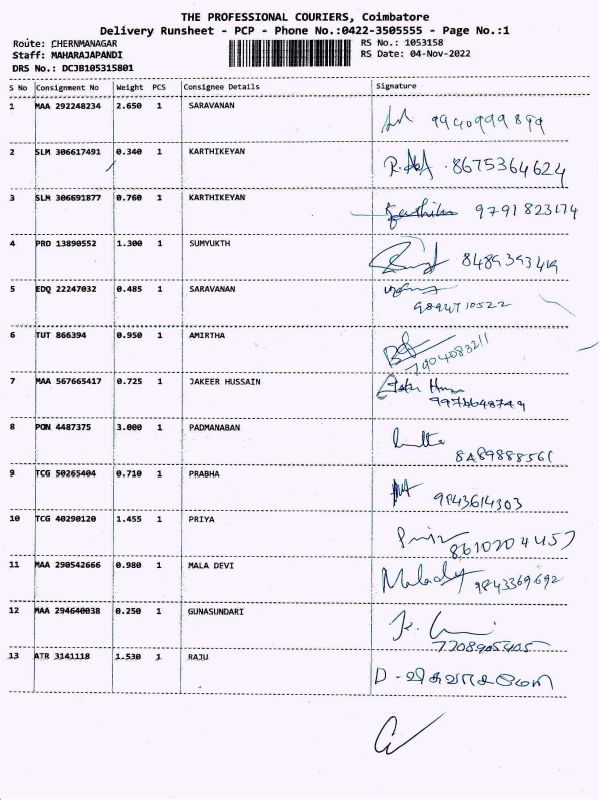 THE PROFESSIONAL COURIERS, Coimbatore
Delivery Runsheet - PCP - Phone No.:0422-3505555 - Page No.:1
Route: CHERNMANAGAR RS No.: 1053158
Staff: MAHARAJAPANDI RS Date: 04-Nov-2022
DRS No.: DCJB105315801
S No Consignment No Weight PCS Consignee Details Signature
1 MAA 292248234 2.650 1 SARAVANAN
9940999899
2 SLM 306617491 0.340 1 KARTHIKEYAN
8675364624
3 SLM 306691877 0.760 1 KARTHIKEYAN
9791823174
4 PRO 13890552 1.300 1 SUMYUKTH
8489393419
5 EDQ 22247032 0.485 1 SARAVANAN
9894710522
6 TUT 866394 0.950 1 AMIRTHA
7904083211
7 MAA 567665417 0.725 1 JAKEER HUSSAIN
8 PON 4487375 3.000 1 PADMANABAN
8489888561
9 TCG 50265404 0.710 1 PRABHA
9843614303
10 TCG 40290120 1.455 1 PRIYA
8610204457
11 MAA 290542666 0.980 1 MALA DEVI
9843369692
12 MAA 294640038 0.250 1 GUNASUNDARI
7708905405
13 ATR 3141118 1.530 1 RAJU